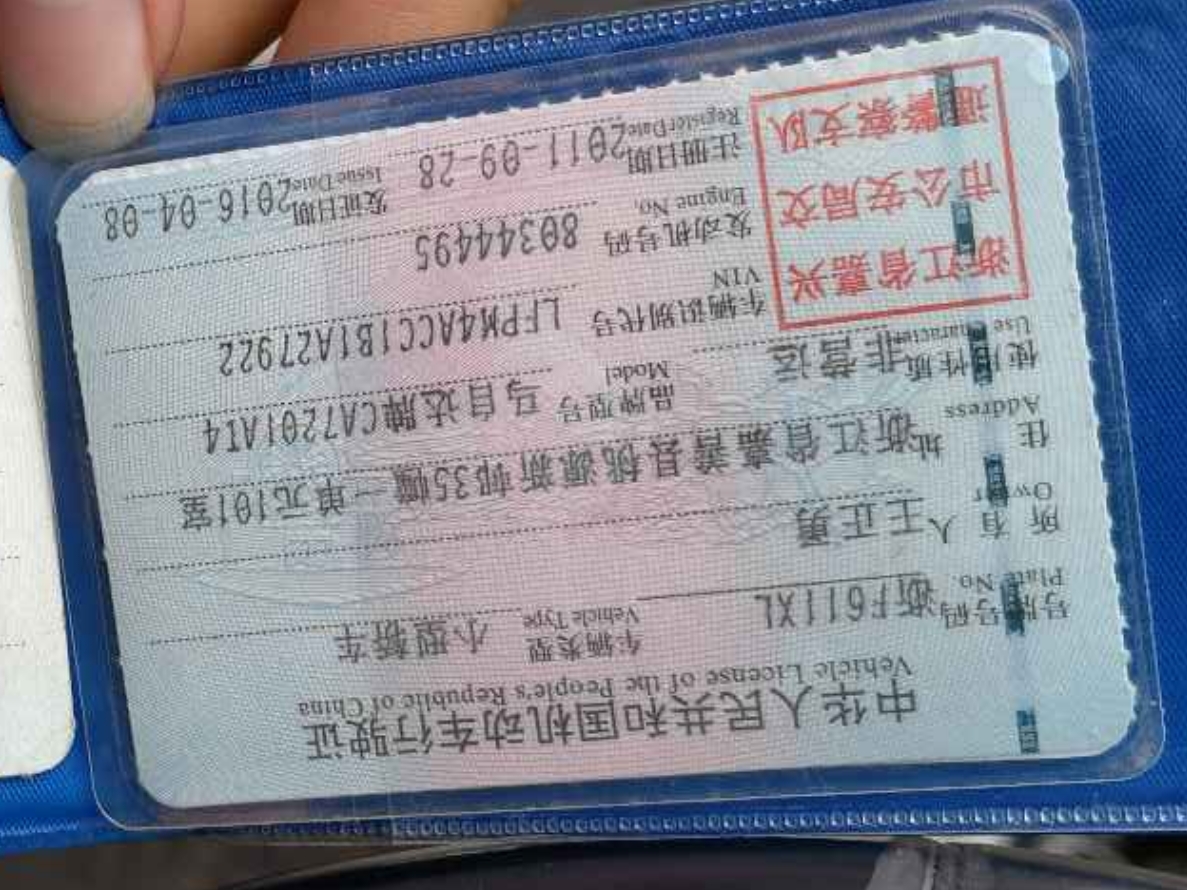 中华人民共和国机动车行驶证
Vehicle License of the People's Republic of China
号牌号码 浙F611XL 车辆类型 小型轿车
Plate No. Vehicle Type
所有人 王正勇
Owner
住址 浙江省嘉善县桃源新邨35幢一单元101室
Address
使用性质 非营运 品牌型号 马自达牌CA7201AT4
Use Character Model
浙江省嘉兴
市公安局交
通警察支队
车辆识别代号 LFPM4ACC1B1A27922
VIN
发动机号码 80344495
Engine No.
注册日期 2011-09-28 发证日期 2016-04-08
Register Date Issue Date